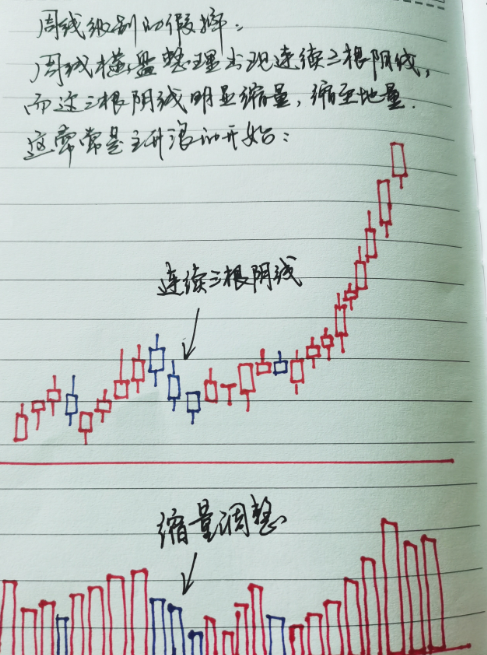 周线级别的假摔：
周线横盘整理出现连续三根阴线，
而这三根阴线明显缩量，缩至地量.
这常常是主升浪的开始：
连续三根阴线
缩量调整